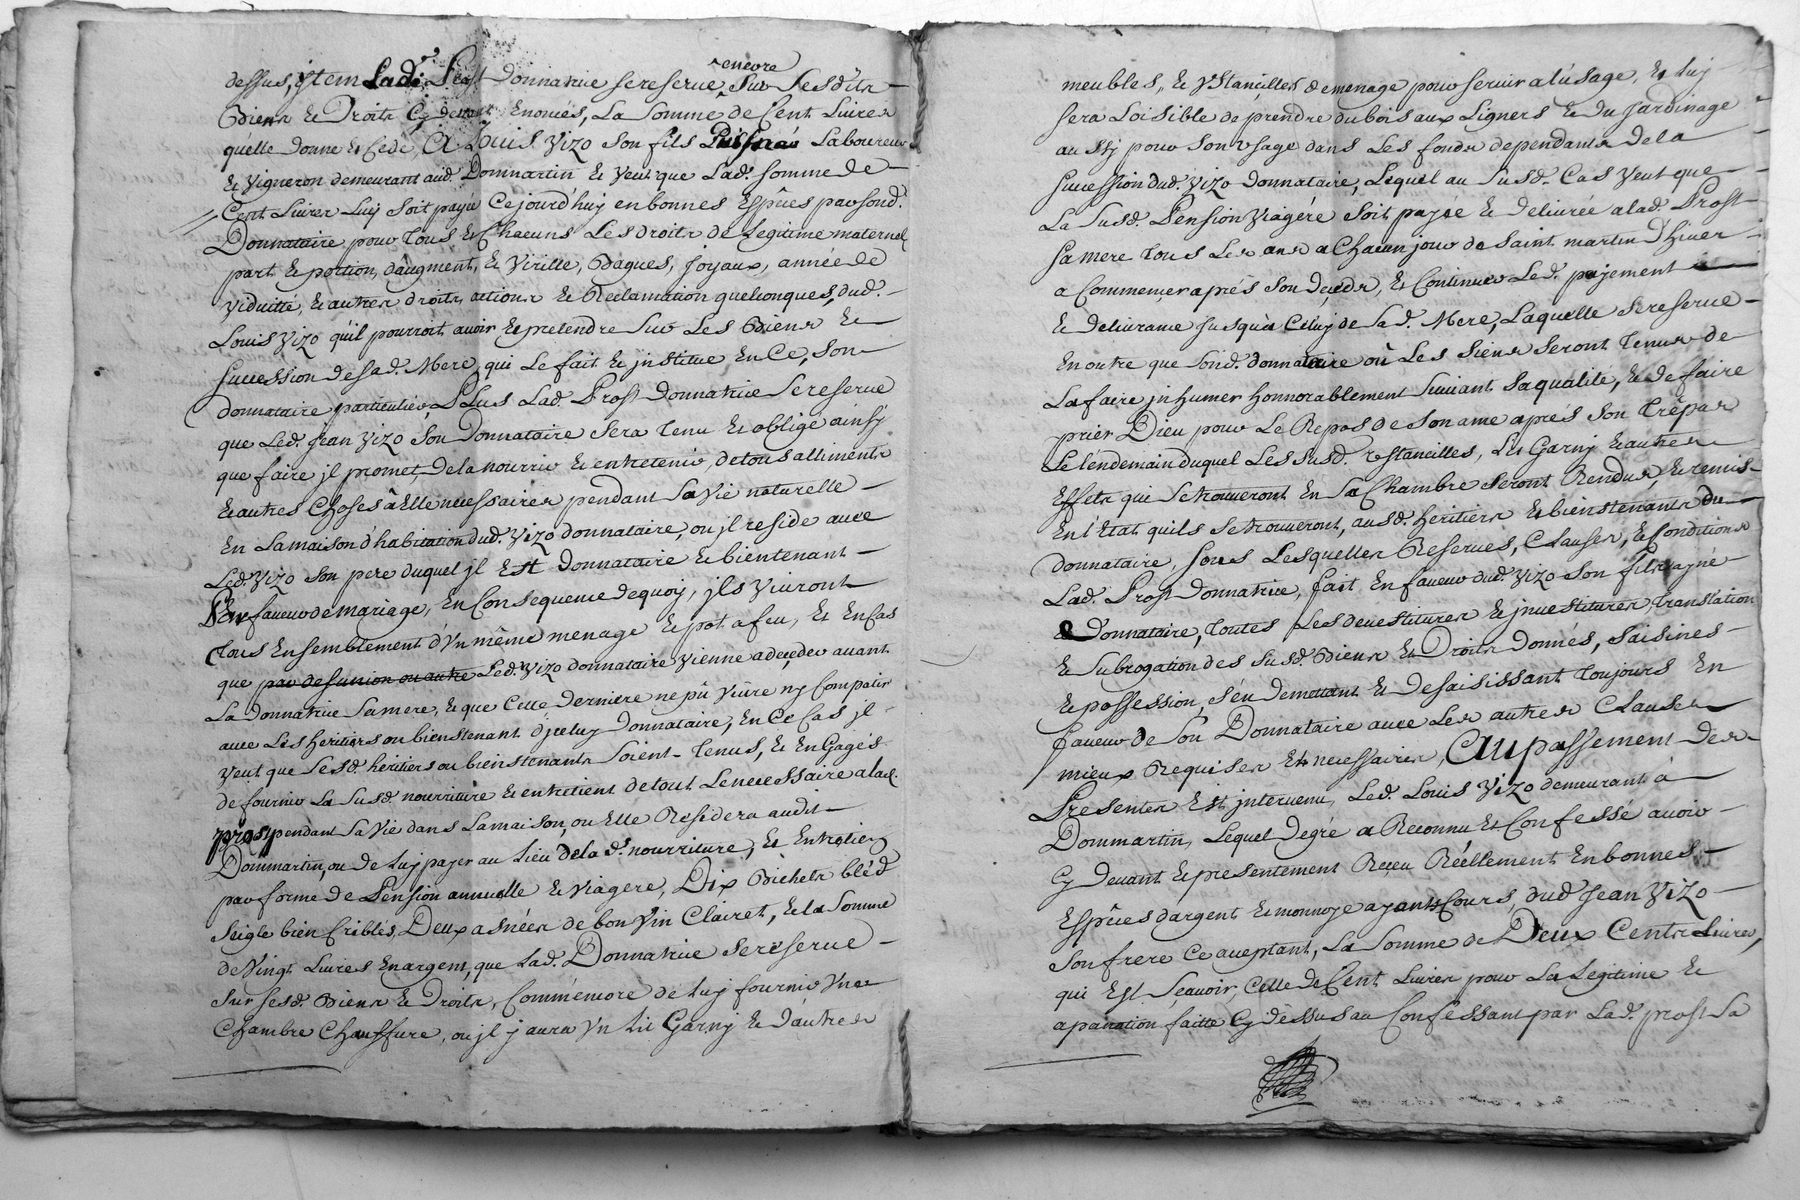 dessus, jtem Ladᵉ. Prost Donnatrice se reserve encore Sur Sesdits
Biens et Droits Cy devant Enoncés, La Somme de Cent Livres
qu'elle donne et Cede, A Louis Vizo son fils Puisnée Laboureur
et Vigneron demeurant aud. Dommartin et veut que Lad. somme de
Cent Livres Luy soit payée Cejourd'huy en bonnes Espêces par sond.
Donnataire pour Tous et Chacuns Les droits de Legitime maternel
part et portion, d'augment, et Virille, Bagues, Joyaux, année de
viduitté, et autres droits, actions et Reclamation quelconques, dud.
Louis Vizo qu'il pourroit avoir et pretendre Sur Les Biens et
Succession de sad. Mere, qui Le fait et jnstitue En Ce, Son
donnataire particulier, Plus Lad. Prost Donnatrice Se reserve
que Led. Jean Vizo Son Donnataire Sera Tenu et obligé ainsy
que faire jl promet, de la nourrir et entretenir, de tous alliments
et autres Choses à Elle necessaires pendant Sa vie naturelle
En Sa maison d'habitation dud. Vizo donnataire, ou jl reside avec
Led. Vizo Son pere duquel jl Est Donnataire et bientenant
Par faveur de mariage, En Consequence de quoy, jls vivront
Tous Ensemblement d'Un même menage et pot a feu, et En Cas
que par desunion ou autre Led. Vizo donnataire vienne a deceder avant
La Donnatrice Sa mere, et que Cette Derniere ne pû vivre ny Compatir
avec Les heritiers ou bienstenant d'jceluy Donnataire, En Ce Cas jl
veut que Sesd. heritiers ou bienstenants Soient Tenus, et EnGagés
de fournir La Susd. nourriture et entretient de tout Le necessaire a lad.
prost pendant Sa vie dans La maison, ou Elle Residera audit
Dommartin, ou de Luy payer au Lieu de la d. nourriture, et Entretien
par forme de Pension annuelle et viagere, Dix Bichets bléd
Seigle bien Criblés, Deux asnées de bon vin Clairet, et la Somme
de Vingt Livres En argent, que Lad. Donnatrice Se reserve
Sur Sesd. Biens et Droits, Comm'emcore de Luy fournir Une
Chambre Chauffure, ou jl y aura Vn Lit Garny et d'autres
meubles, et Vstancilles de menage pour servir a l'usage, et Luy
sera Loisible de prendre du bois aux Ligners et du Jardinage
aussy pour Son Vsage dans Les fonds dependants de la
Succession dud. Vizo Donnataire, Lequel au Susd. Cas veut que
La Susd. Pension viagére Soit payée et delivrée a lad. Prost
Sa mere Tous Les ans a Chacun jour de Saint martin D'hiver
a Commencer aprés Son Decéds, et Continuer Led. payement
et delivrance jusqu'a Celuy de Sad. Mere, Laquelle Se reserve
En outre que Sond. donnataire où Les Siens Seront Tenus de
La faire jnhumer honnorablement Suivant Sa qualité, et de faire
prier Dieu pour Le Repos de Son ame aprés Son Trêpas
Le lendemain duquel Les susd. vstancilles, Lit Garny et autres
Effets qui Se trouveront En Sa Chambre Seront Rendus, et remis
En l'Etat qu'ils Se trouveront, ausd. heritiers et bienstenants du
donnataire, Sous Lesquelles Reserves, Clauses, et Conditions
Lad. Prost Donnatrice, fait En faveur dud. Vizo Son fils ayné
Donnataire, Toutes Les devestitures et jnvestitures, Translation
et Subrogation des Susd. Biens et Droits Donnés, Saisines
et possession, s'en Demettant et Desaisissant Toujours En
faveur de Son Donnataire avec Les autres Clauses
mieux Requises et necessaires, Au passement des
Presentes Est jntervenu, Led. Louis Vizo demeurant à
Dommartin, Lequel Degré a Reconnu et Confessé avoir
Cy Devant et presentement Receu Réellement En bonnes
Espêces d'argent et monnoye ayants Cours, dud. Jean Vizo
Son frere Ce aceptant, La Somme de Deux Cents Livres,
qui Est Sçavoir, Celle de Cent Livres pour La Legitime et
apanation faitte Cy dessus au Confessant par Lad. prost Sa